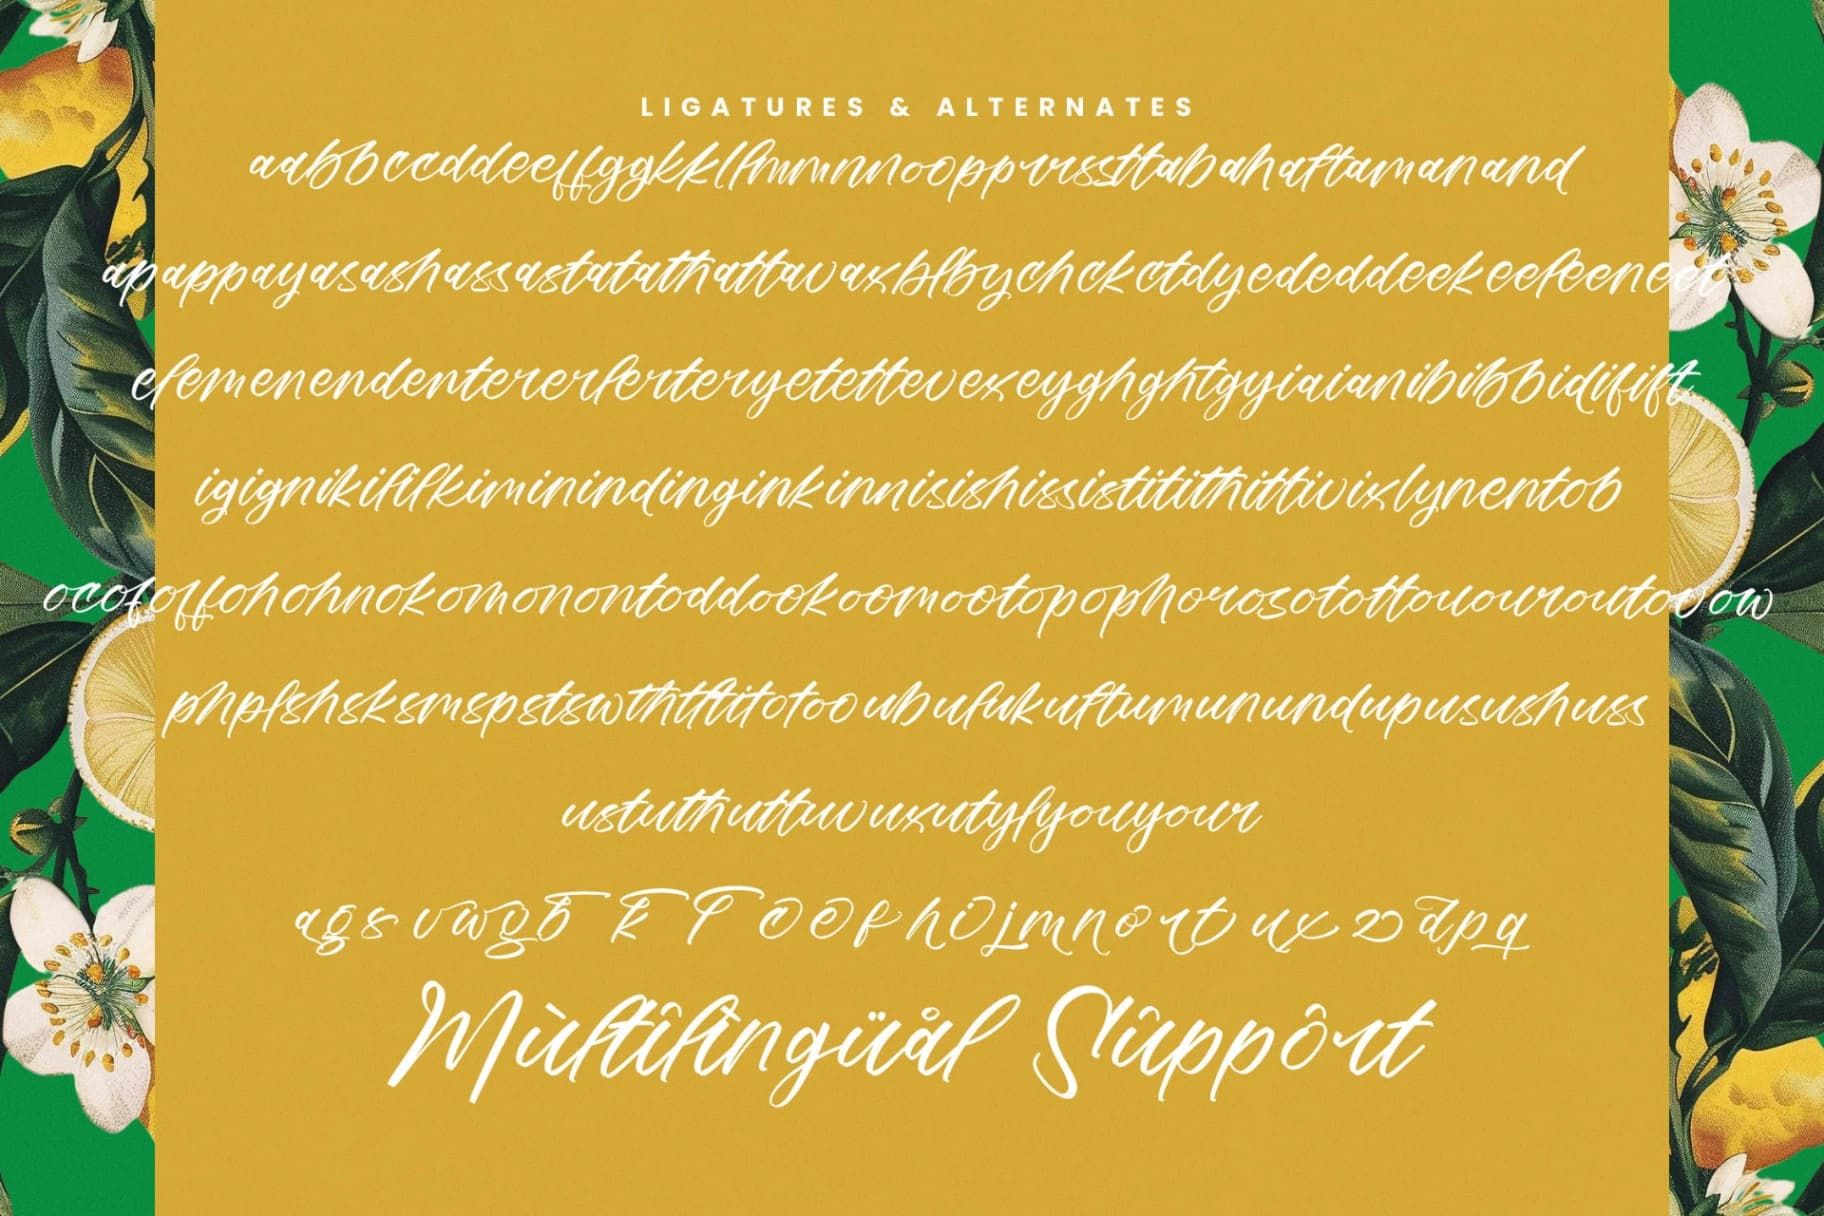 LIGATURES & ALTERNATES
aabbccddeeffggkkllmmnnooopprrssttabahaftamanand
apappayasashassastatathattavaxblbychckctdyededdeekeeleeneet
elemenendentererlerteryetettevexeyghghtgyiaianibibbidifift
igignikililkiminindinginkinnisishississtitithittivixlynentob
ocofoffohohnokomonontoddookoomootopophorosotottououroutovow
phplshsksmspstswththtltitotooubulukuftumunundupusushuss
ustuthuttuvuxutylyouyour
Mùltîlîngüål Sûppôrt